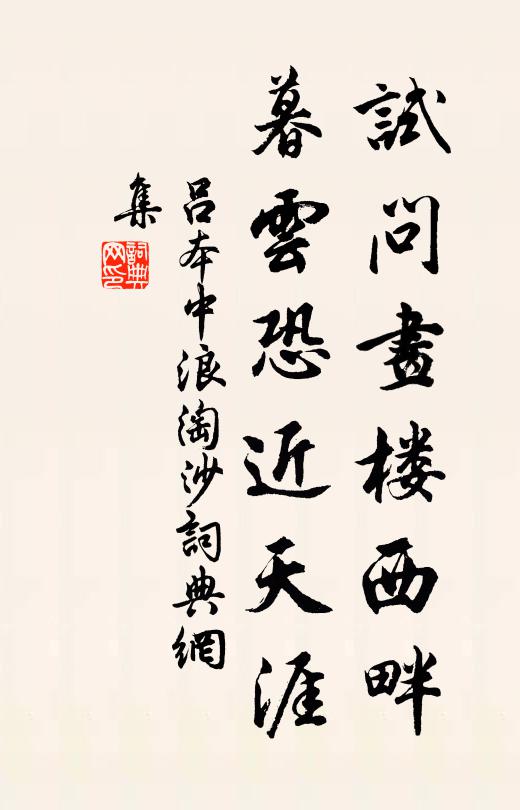 試問畫楼西畔
暮雲恐近天涯
吕本中浪淘沙詞典網
集
詞典網印